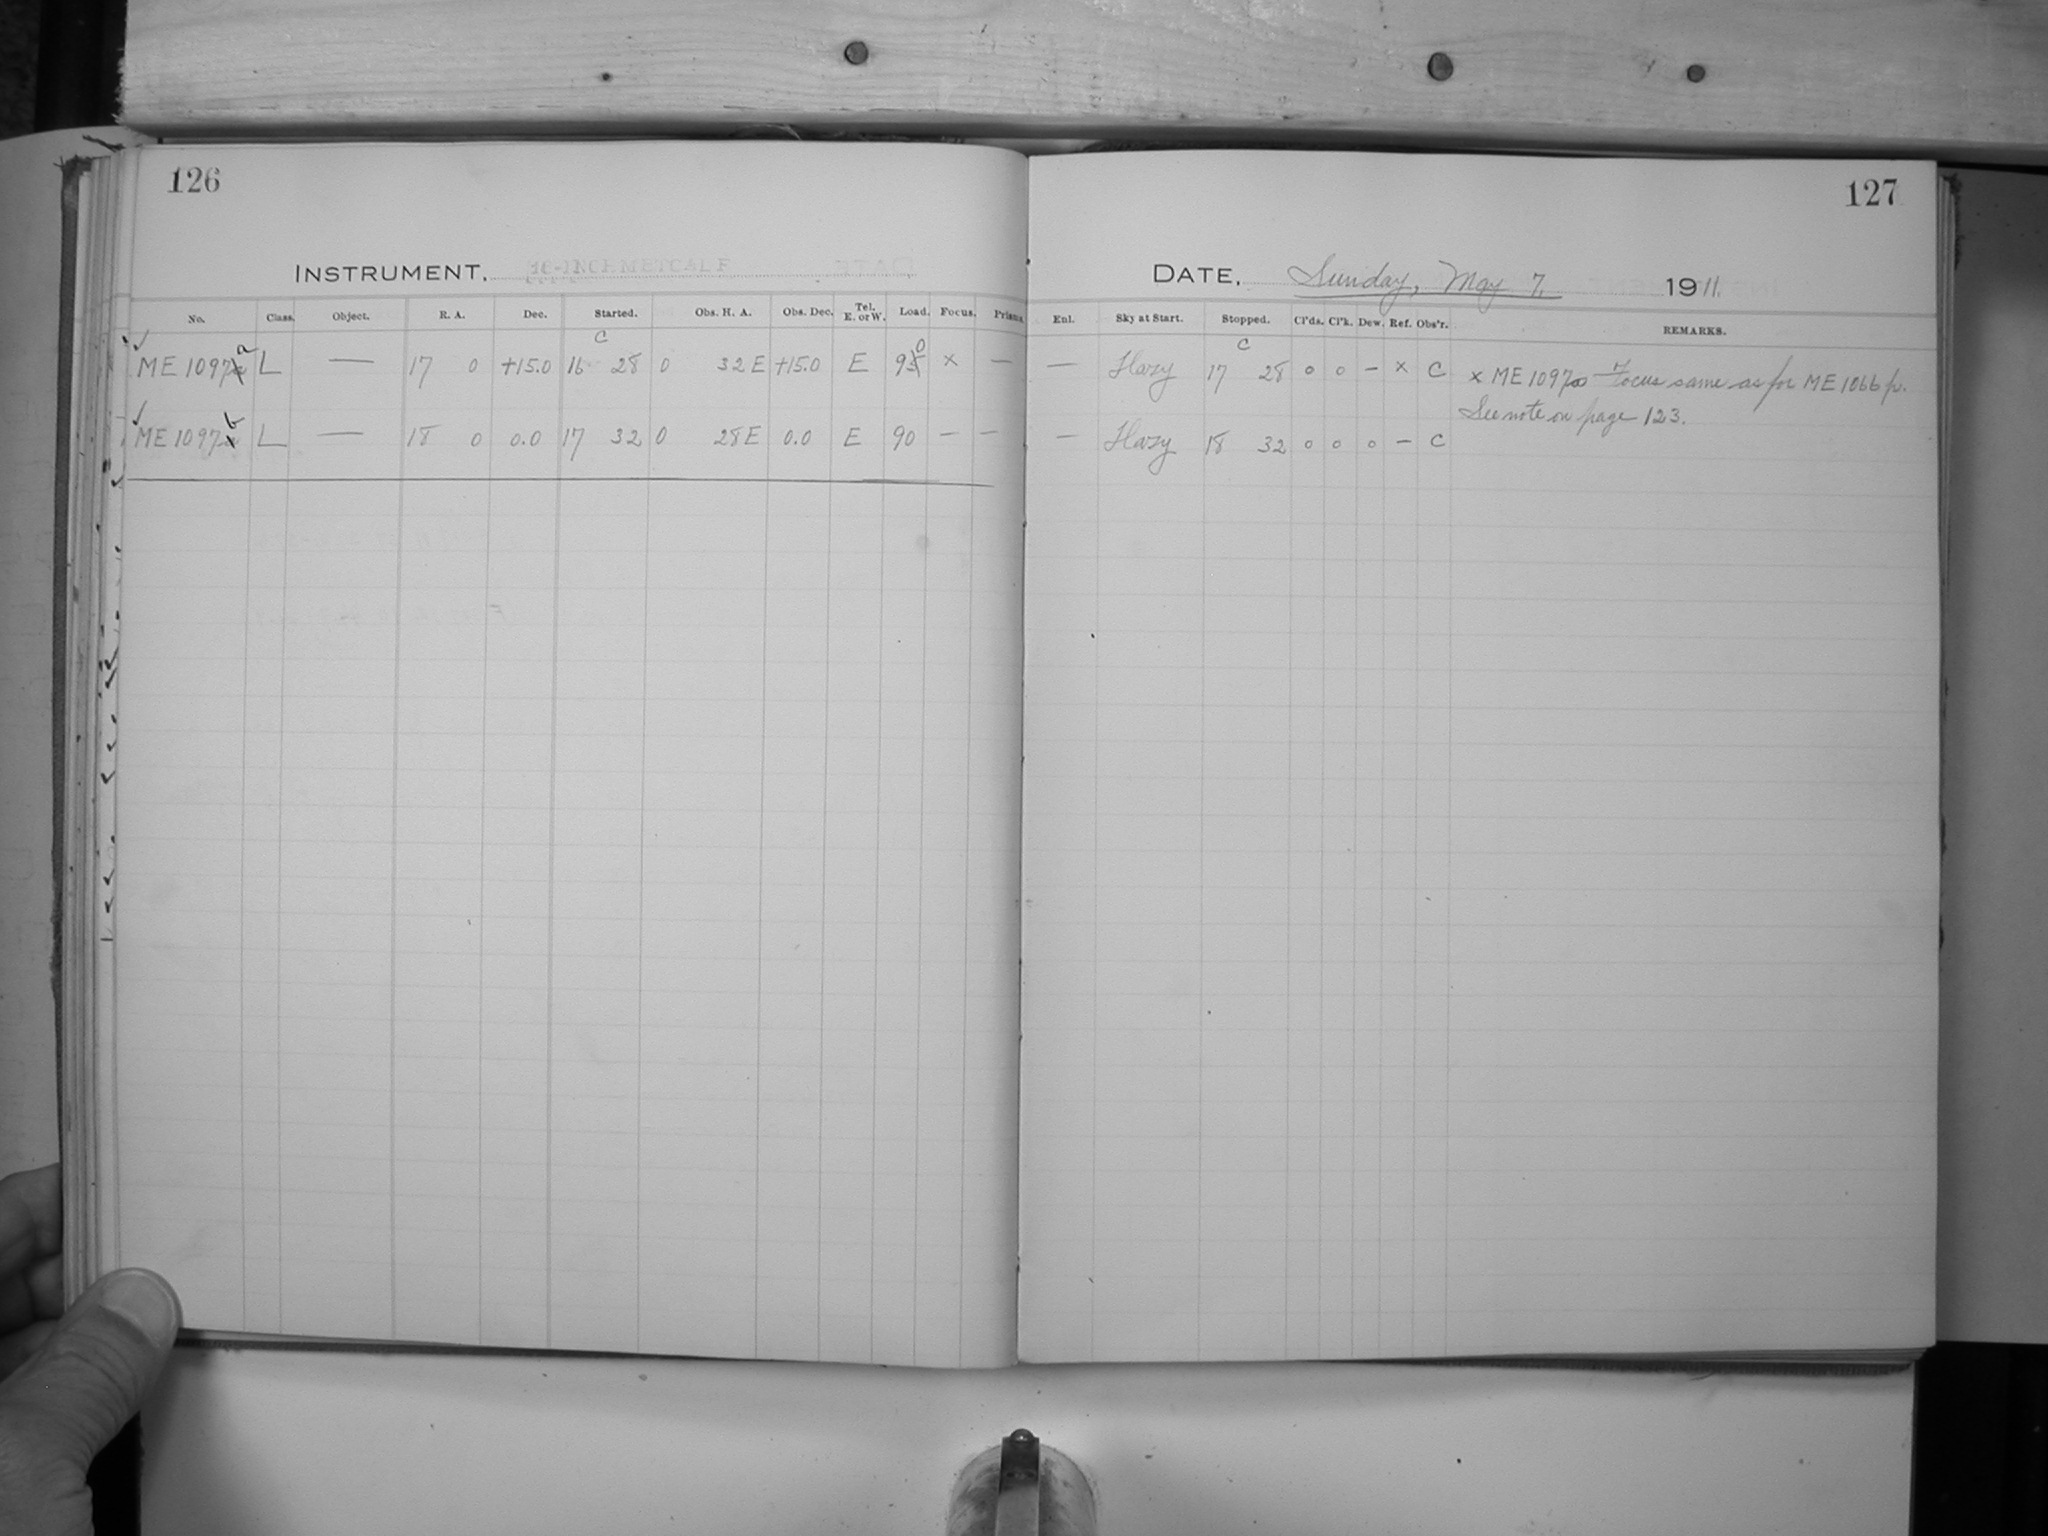 126
INSTRUMENT. 16-INCH METCALF
No. Class. Object. R. A. Dec. Started. Obs. H. A. Obs. Dec. Tel. E. or W. Load. Focus. Prisms.
✓ ME 1097 a L — 17 0 +15.0 16 28 C 0 32 E +15.0 E 90 × —
✓ ME 1097 b L — 18 0 0.0 17 32 0 28 E 0.0 E 90 — —
127
DATE, Sunday, May 7, 1911.
Enl. Sky at Start. Stopped. Cl'ds. Cl'k. Dew. Ref. Obs'r. REMARKS.
— Hazy 17 28 C 0 0 — × C × ME 1097 — Focus same as for ME 1066 p.
See note on page 123.
— Hazy 18 32 0 0 0 — C